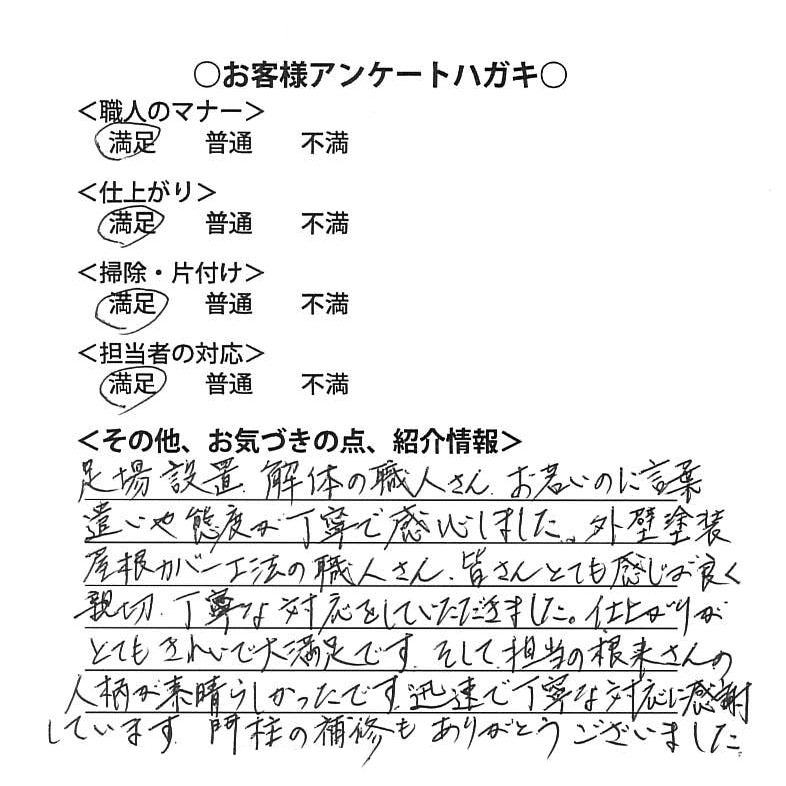 ○お客様アンケートハガキ○
＜職人のマナー＞
満足 普通 不満
＜仕上がり＞
満足 普通 不満
＜掃除・片付け＞
満足 普通 不満
＜担当者の対応＞
満足 普通 不満
＜その他、お気づきの点、紹介情報＞
足場設置、解体の職人さん、お若いのに言葉
遣いや態度が丁寧で感心しました。外壁塗装
屋根カバー工法の職人さん、皆さんとても感じが良く
親切、丁寧な対応をしていただきました。仕上がりが
とてもきれいで大満足です。そして、担当の根来さんの
人柄が素晴らしかったです。迅速で丁寧な対応に感謝
しています。門柱の補修もありがとうございました。